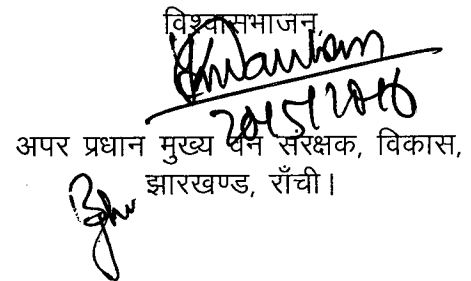 विश्वासभाजन,
20/5/2016
अपर प्रधान मुख्य वन संरक्षक, विकास,
झारखण्ड, राँची।